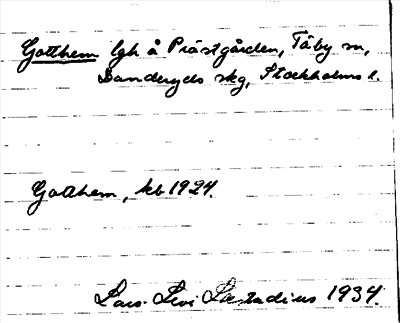 Gotthem lgh å Prästgården, Täby sn,
Danderyds skg, Stockholms l.
Gotthem, kb 1924.
Lars Levi Læstadius 1934.